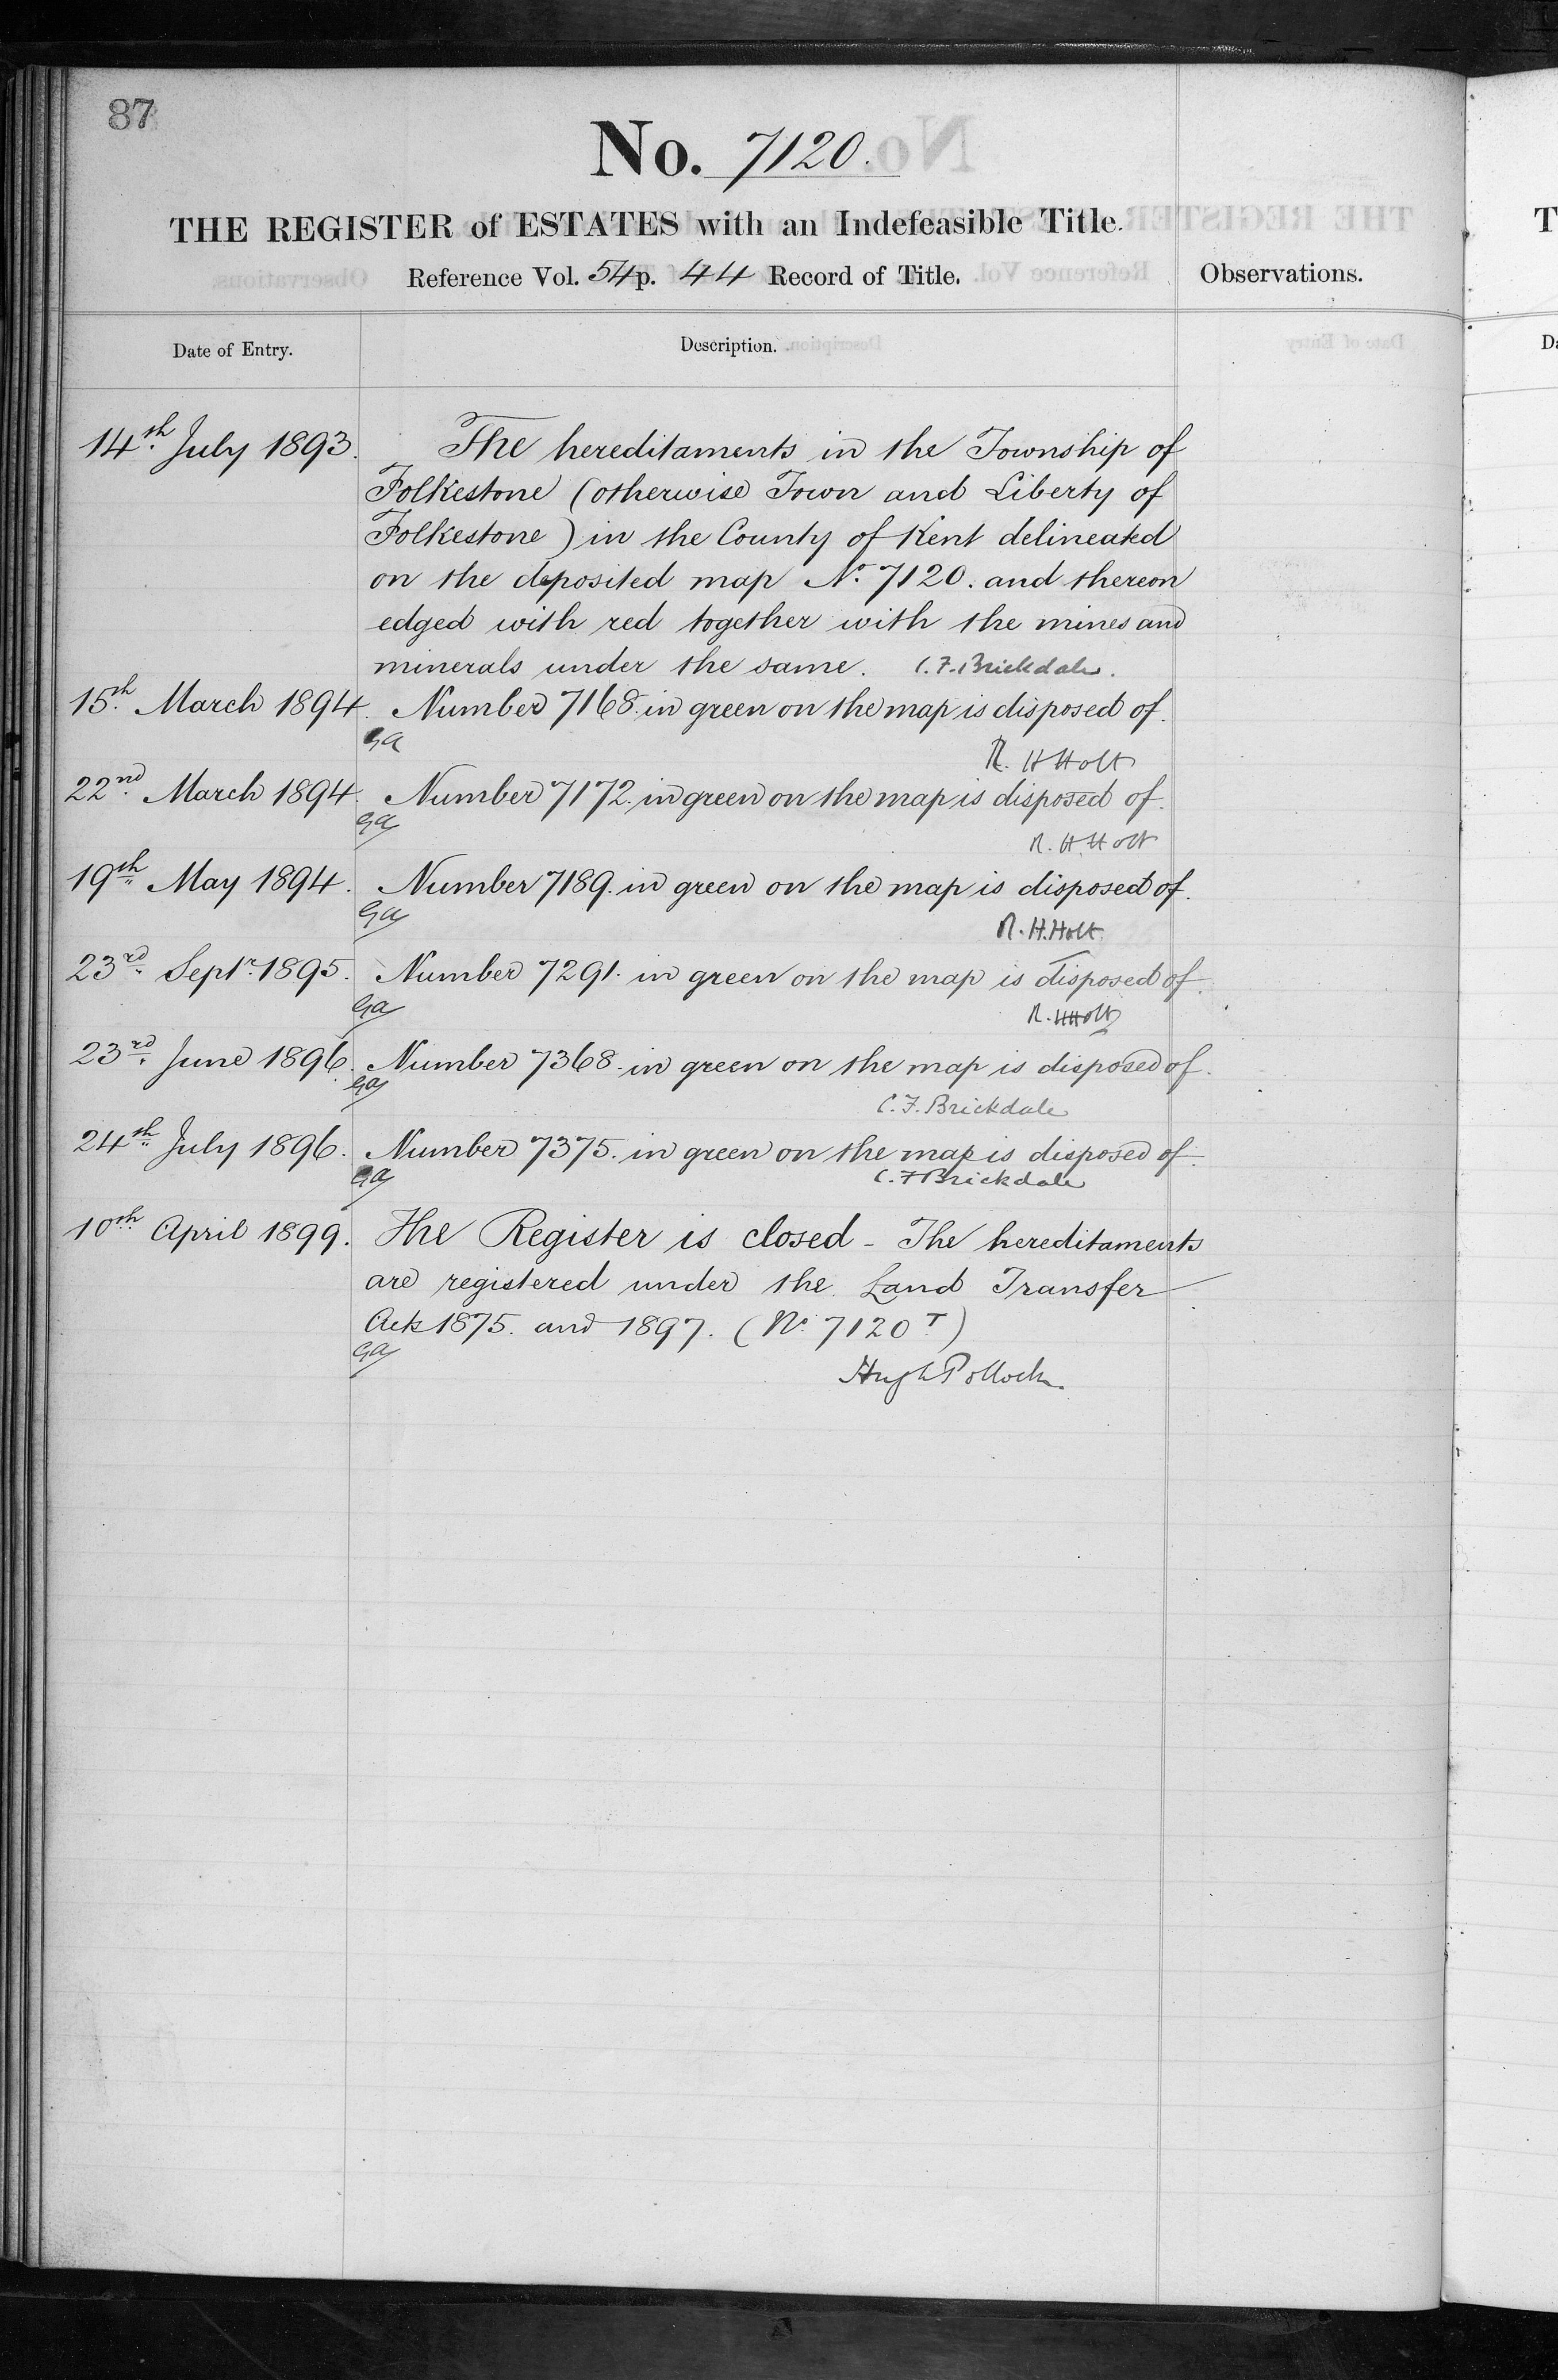 87
No. 7120.
THE REGISTER of ESTATES with an Indefeasible Title.
Reference Vol. 54 p. 44 Record of Title.
Observations.
Date of Entry.
Description.
14th July 1893. The hereditaments in the Township of
Folkestone (otherwise Town and Liberty of
Folkestone) in the County of Kent delineated
on the deposited map No. 7120. and thereon
edged with red together with the mines and
minerals under the same. C.F. Brickdale.
15th March 1894. Number 7168. in green on the map is disposed of.
GA
R. H Holt
22nd March 1894. Number 7172. in green on the map is disposed of.
GA
R. H. Holt
19th May 1894. Number 7189. in green on the map is disposed of.
GA
R. H. Holt
23rd Septr. 1895. Number 7291. in green on the map is disposed of.
GA
R. H Holt
23rd June 1896. Number 7368. in green on the map is disposed of.
GA
C. F. Brickdale
24th July 1896. Number 7375. in green on the map is disposed of.
GA
C. F Brickdale
10th April 1899. The Register is closed - The hereditaments
are registered under the Land Transfer
Acts 1875. and 1897. (No. 7120 T)
GA
Hugh Pollock